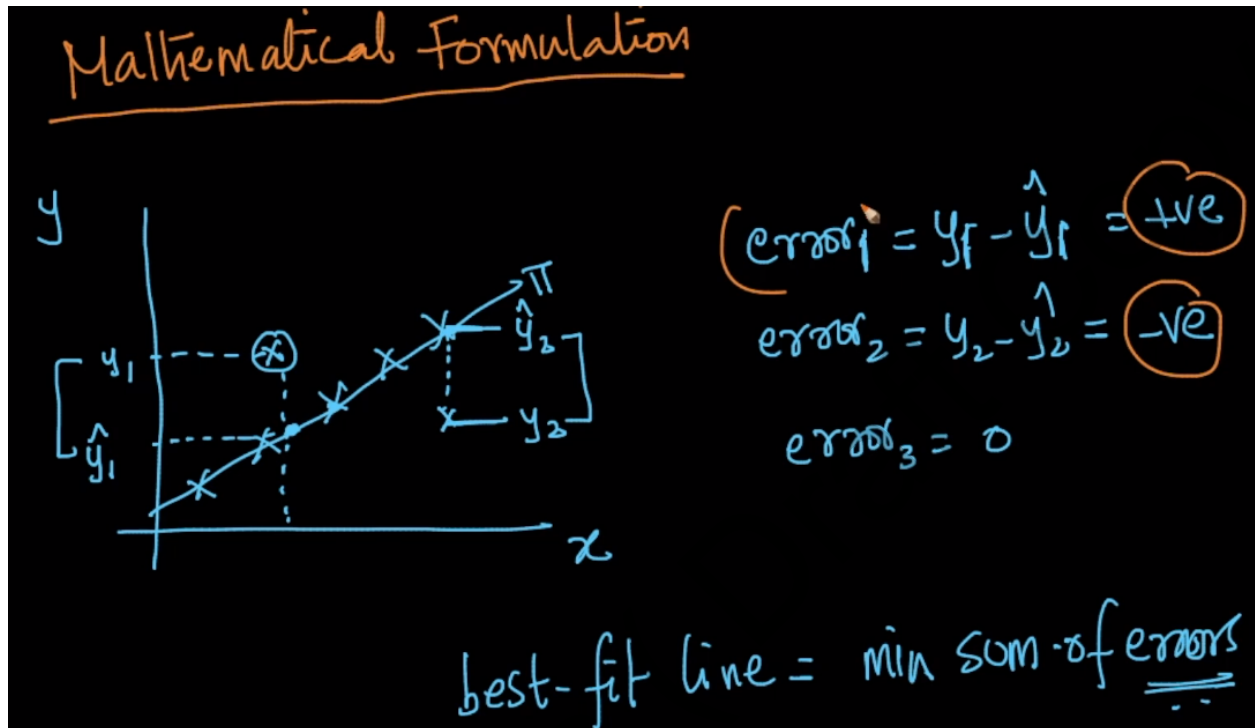 Mathematical Formulation
y
π
y₁
ŷ₁
ŷ₂
y₂
x
error₁ = y₁ - ŷ₁ = +ve
error₂ = y₂ - ŷ₂ = -ve
error₃ = 0
best-fit line = min sum of errors